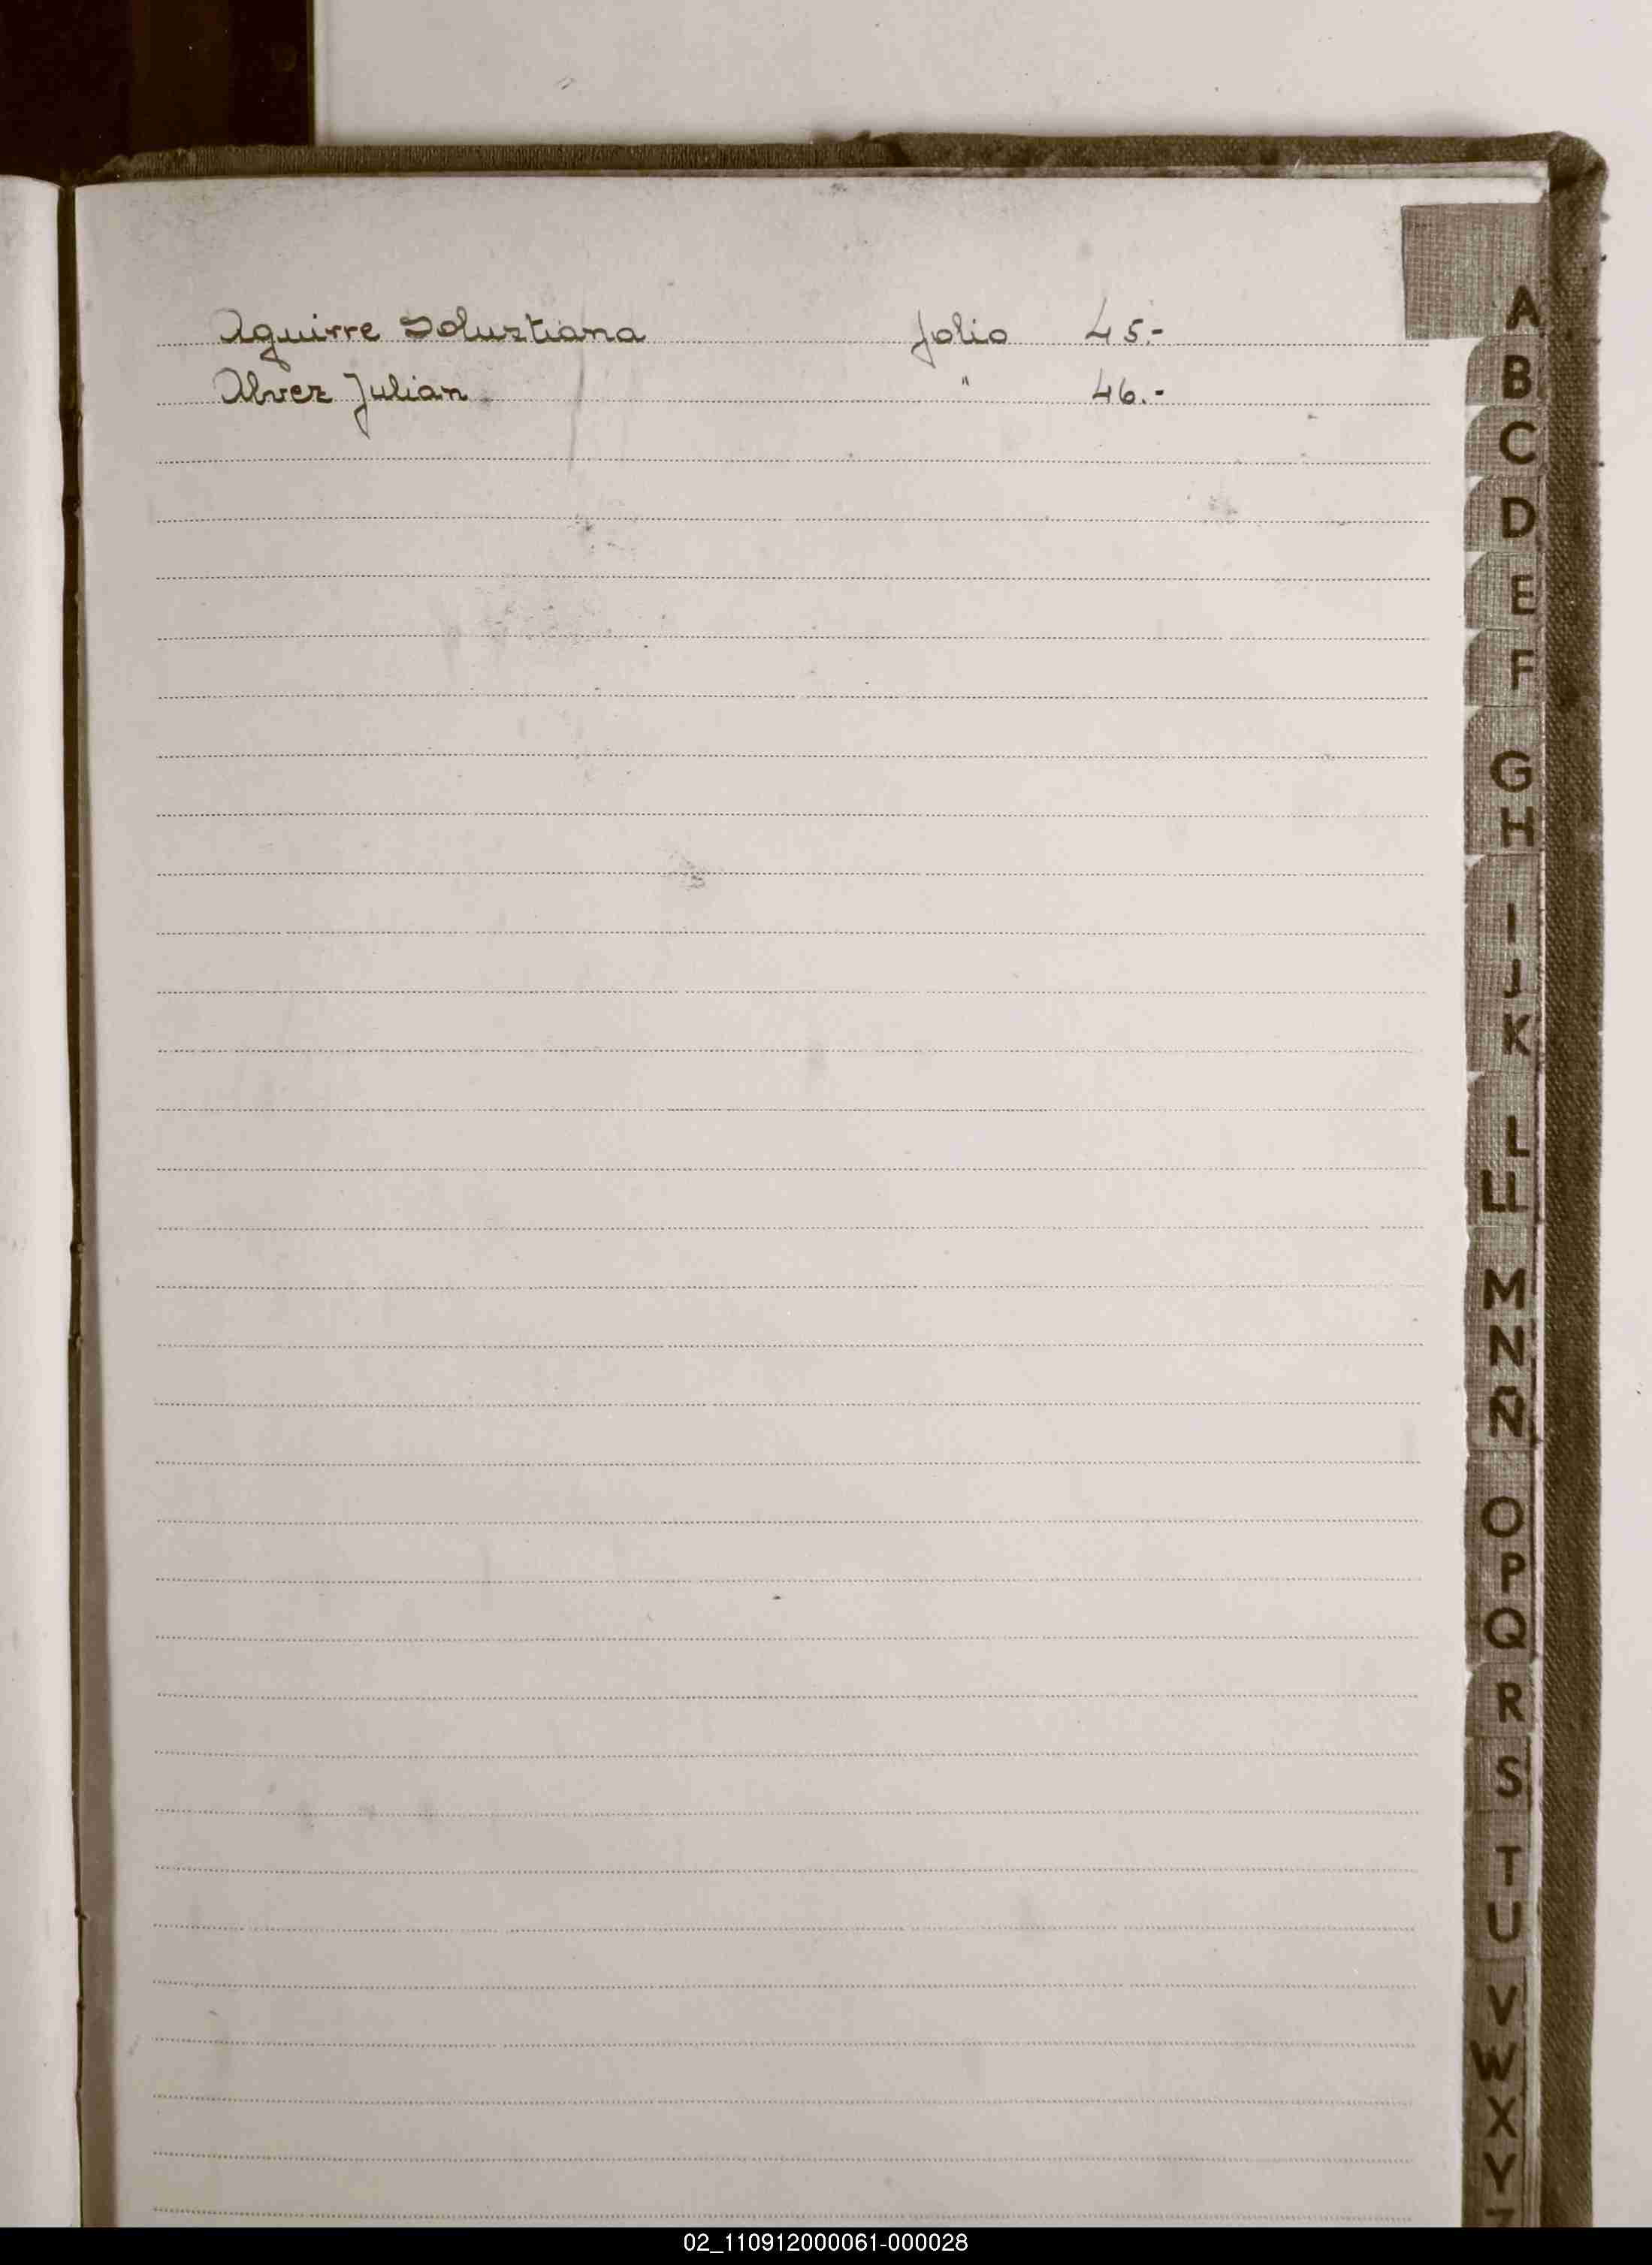 Aguirre Soluztiana folio 45.-
Alvez Julian " 46.-
A
B
C
D
E
F
G
H
I
J
K
L
LL
M
N
Ñ
O
P
Q
R
S
T
U
V
W
X
Y
Z
02_110912000061-000028